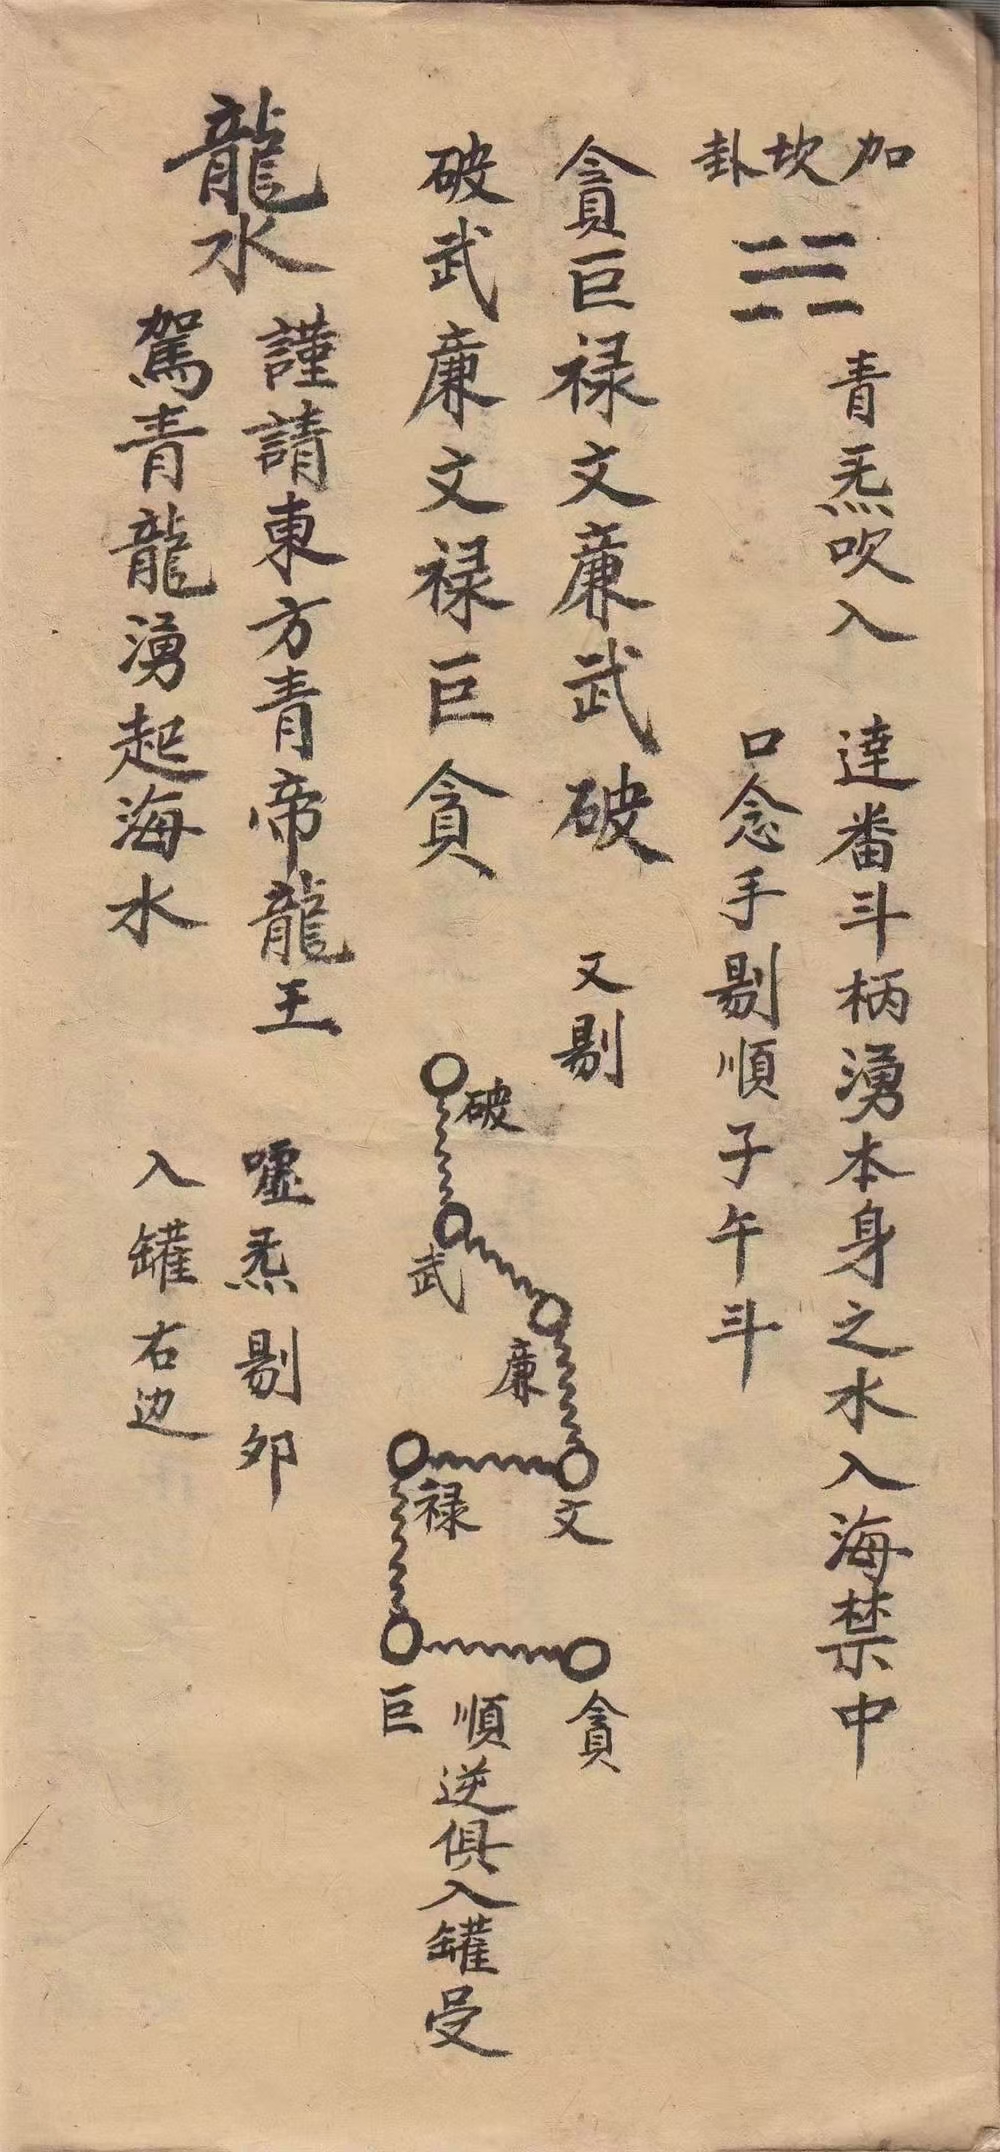 加坎卦
青炁吹入
達番斗柄湧本身之水入海禁中
口念手剔順子午斗
貪巨禄文廉武破
又剔
破武廉文禄巨貪
破
武
廉
文
禄
巨
貪
順逆俱入罐受
龍水
謹請東方青帝龍王
駕青龍湧起海水
噓炁剔卯
入罐右边